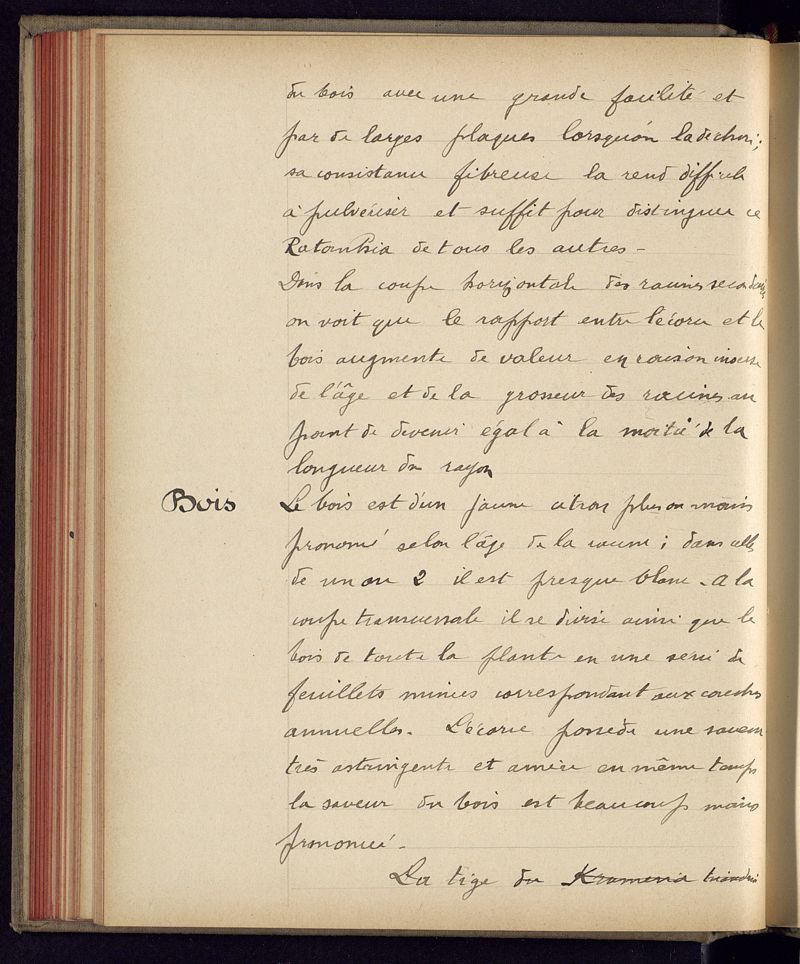 du bois avec une grande facilité et
par de larges plaques lorsqu'on la déchire;
sa consistance fibreuse la rend difficile
à pulvériser et suffit pour distinguer ce
Ratanhia de tous les autres -
Dans la coupe horizontale des racines secondaires
on voit que le rapport entre l'écorce et le
bois augmente de valeur en raison inverse
de l'âge et de la grosseur des racines au
point de devenir égal à la moitié de la
longueur du rayon
Bois Le bois est d'un jaune citron plus ou moins
prononcé selon l'âge de la racine ; dans celles
de un ou 2 il est presque blanc - A la
coupe transversale il se divise ainsi que le
bois de toute la plante en une serie de
feuillets minces correspondant aux couches
annuelles. L'écorce possède une saveur
très astringente et amère en même temps
la saveur du bois est beaucoup moins
prononcée -
La tige du Krameria triandria